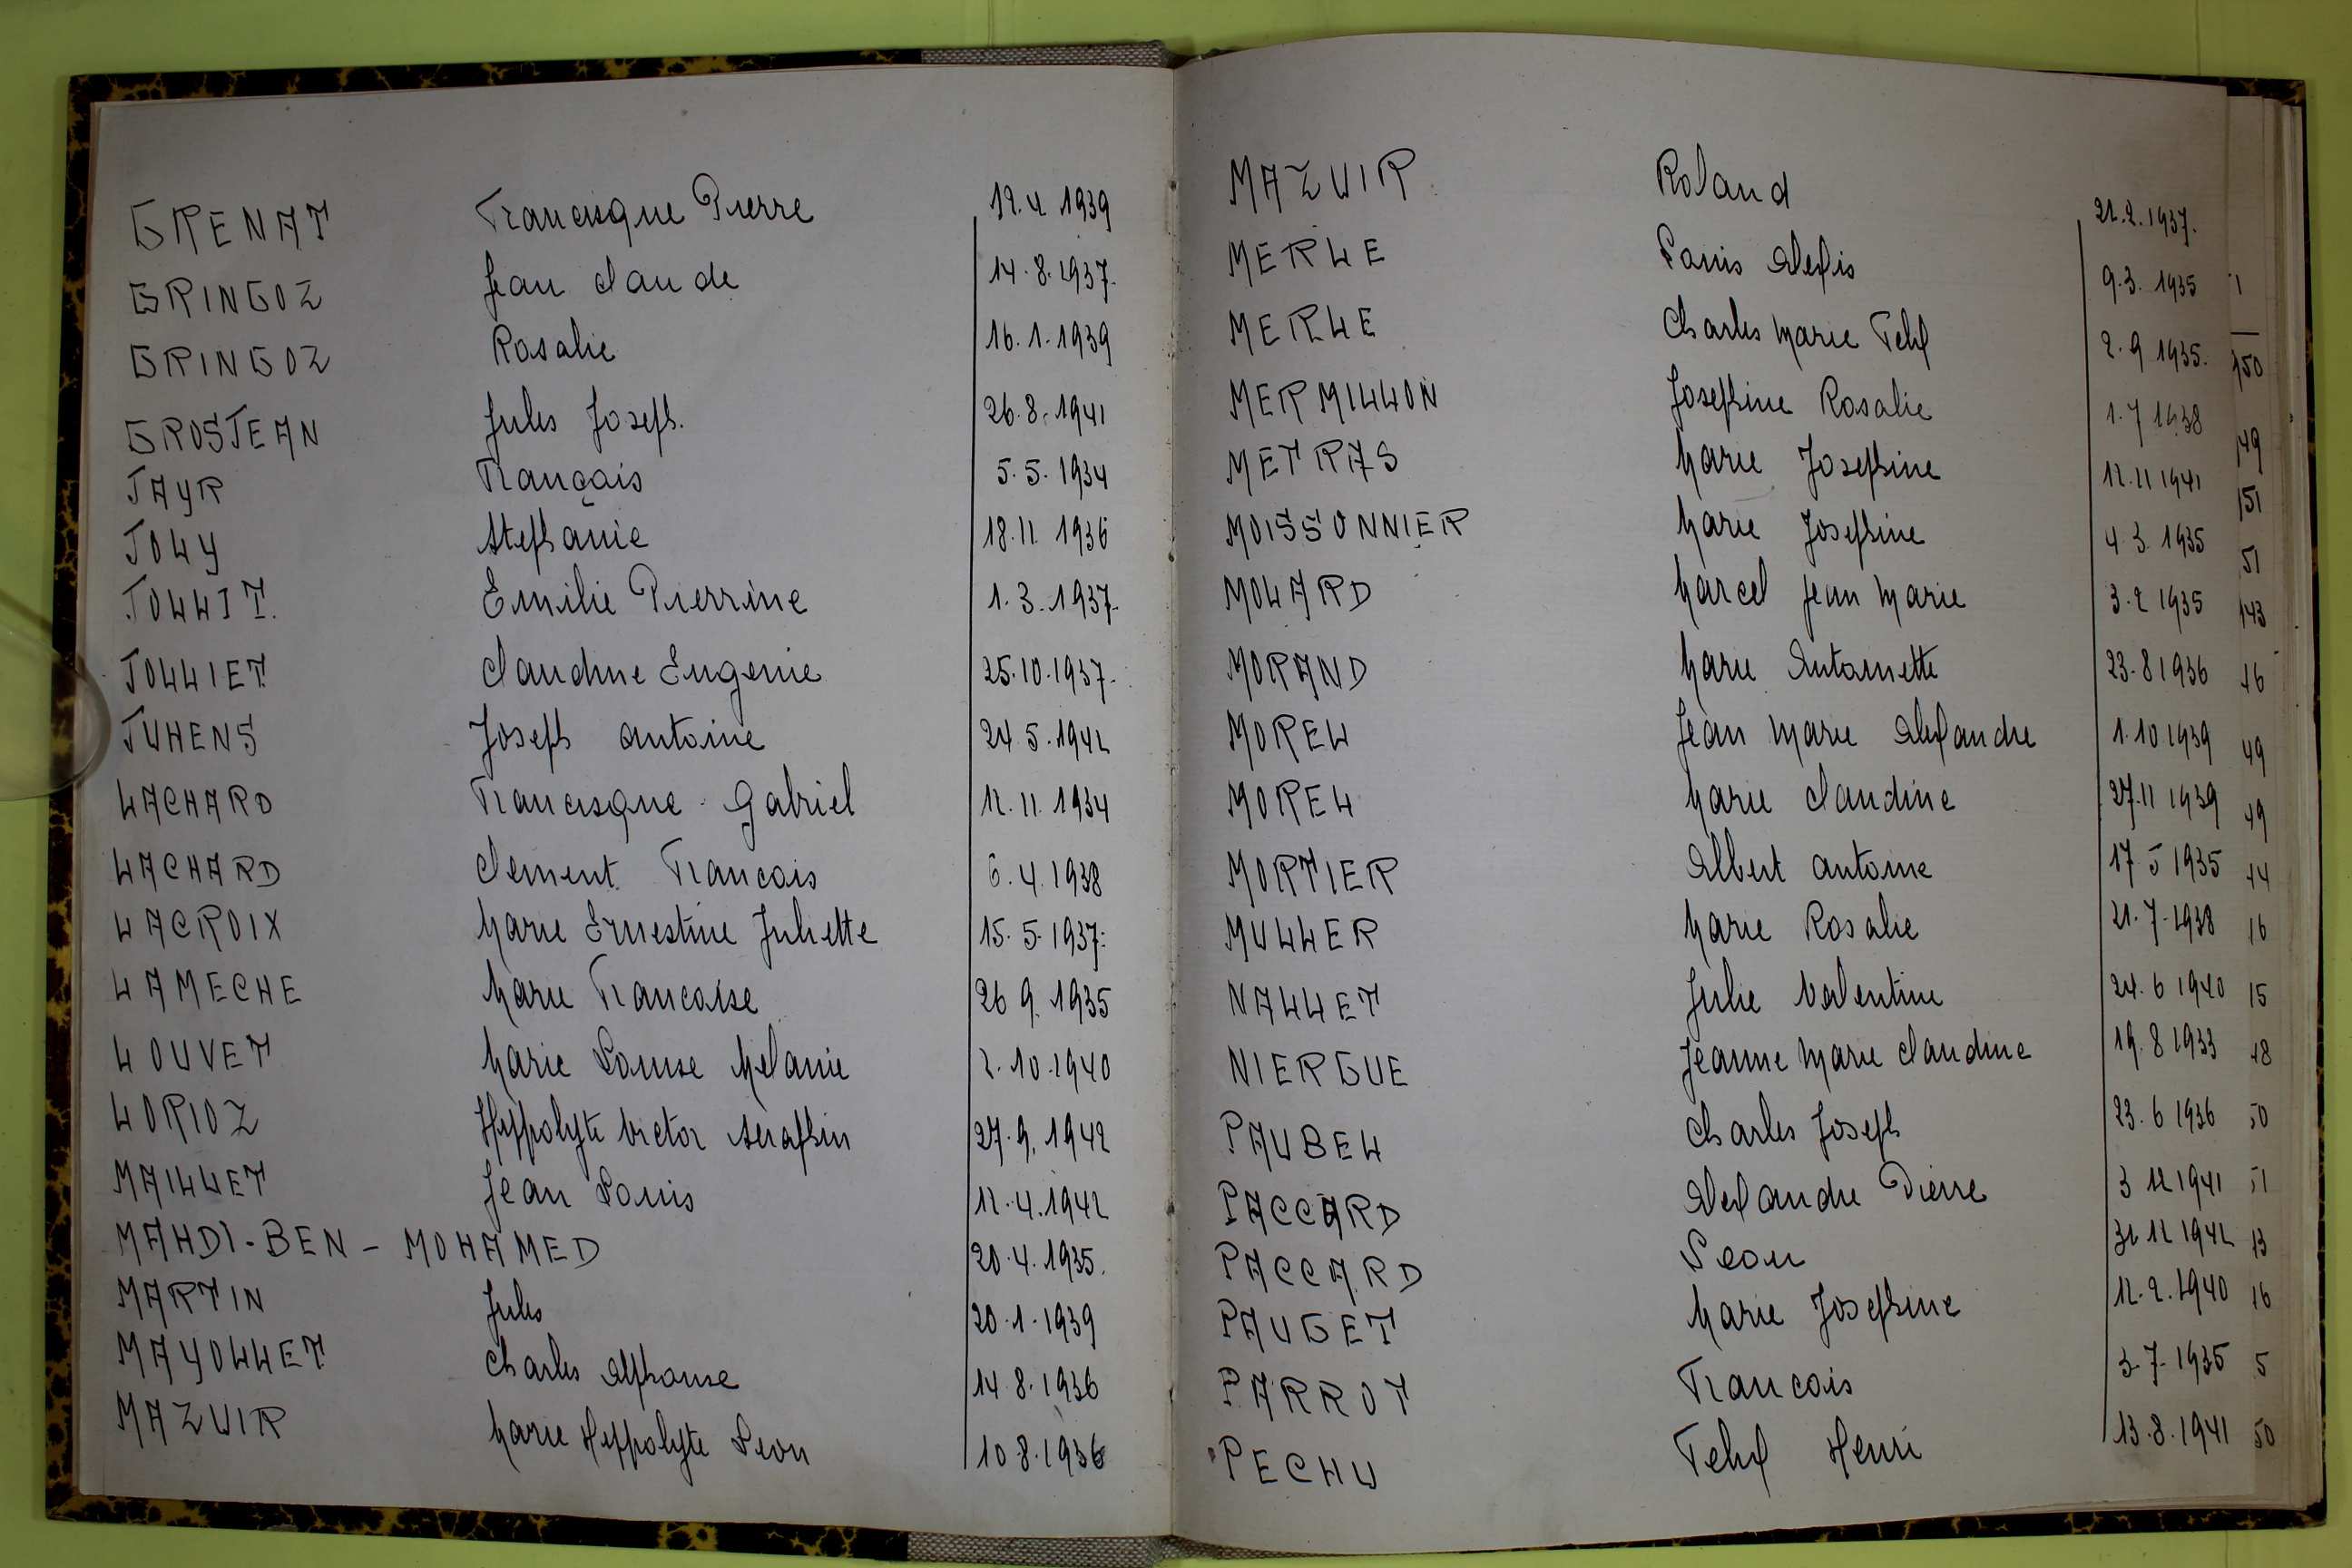 GRENAT Francisque Pierre 12.4.1939
GRINGOZ Jean Claude 14.8.1937.
GRINGOZ Rosalie 16.1.1939
GROSJEAN Jules Joseph. 26.8.1941
JAYR François 5.5.1934
JOLY Stephanie 18.11.1936
JOLLIT. Emilie Pierrine 1.3.1937.
JOLLIET Claudine Eugenie 25.10.1937.
JUHENS Joseph Antoine 24.5.1942
LACHARD Francisque Gabriel 12.11.1934
LACHARD Clement Francois 6.4.1938
LACROIX Marie Ernestine Juliette 15.5.1937.
LAMECHE Marie Francoise 26 9. 1935
LOUVET Marie Louise Melanie 2.10.1940
LORIOZ Hyppolyte Victor Seraphin 27.9.1942
MAILLET Jean Louis 12.4.1942
MAHDI-BEN-MOHAMED 20.4.1935.
MARTIN Jules 20.1.1939
MAYOLLET Charles Alphonse 14.8.1936
MAZUIR Marie Hyppolyte Leon 10 8.1936
MAZUIR Roland 22.2.1937.
MERLE Louis Alexis 9.3. 1935
MERLE Charles Marie Felix 2.9 1935.
MERMILLON Josephine Rosalie 1.7 1938
METRAS Marie Josephine 12.11 1941
MOISSONNIER Marie Josephine 4 3. 1935
MOLARD Marcel Jean Marie 3.2 1935
MORAND Marie Antoinette 23.8 1936
MOREL Jean Marie Alexandre 1.10.1939
MOREL Marie Claudine 27.11 1939
MORTIER Albert Antoine 17 5 1935
MULLER Marie Rosalie 21.7.1938
NALLET Julie Valentine 24.6 1940
NIERGUE Jeanne Marie Claudine 19.8 1933
PAUBEL Charles Joseph 23.6 1936
PACCARD Alexandre Pierre 3 12 1941
PACCARD Leon 31 12 1942
PAUGET Marie Josephine 12.2.1940
PARROT Francois 3.7.1935
PECHU Felix Henri 13.8.1941